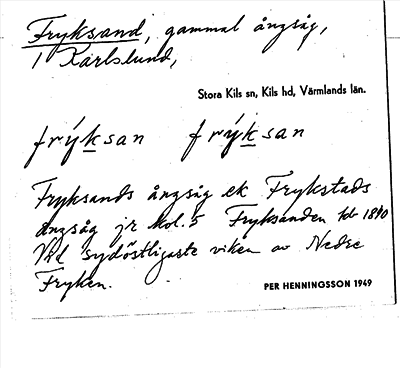 Fryksand, gammal ångsåg,
i Karlslund,
Stora Kils sn, Kils hd, Värmlands län.
frýksan frýksan
Fryksands ångsåg ek Frykstads
ångsåg jr kol. 5 Fryksanden kb 1840
Vid sydöstligaste viken av Nedre
Fryken.
PER HENNINGSSON 1949